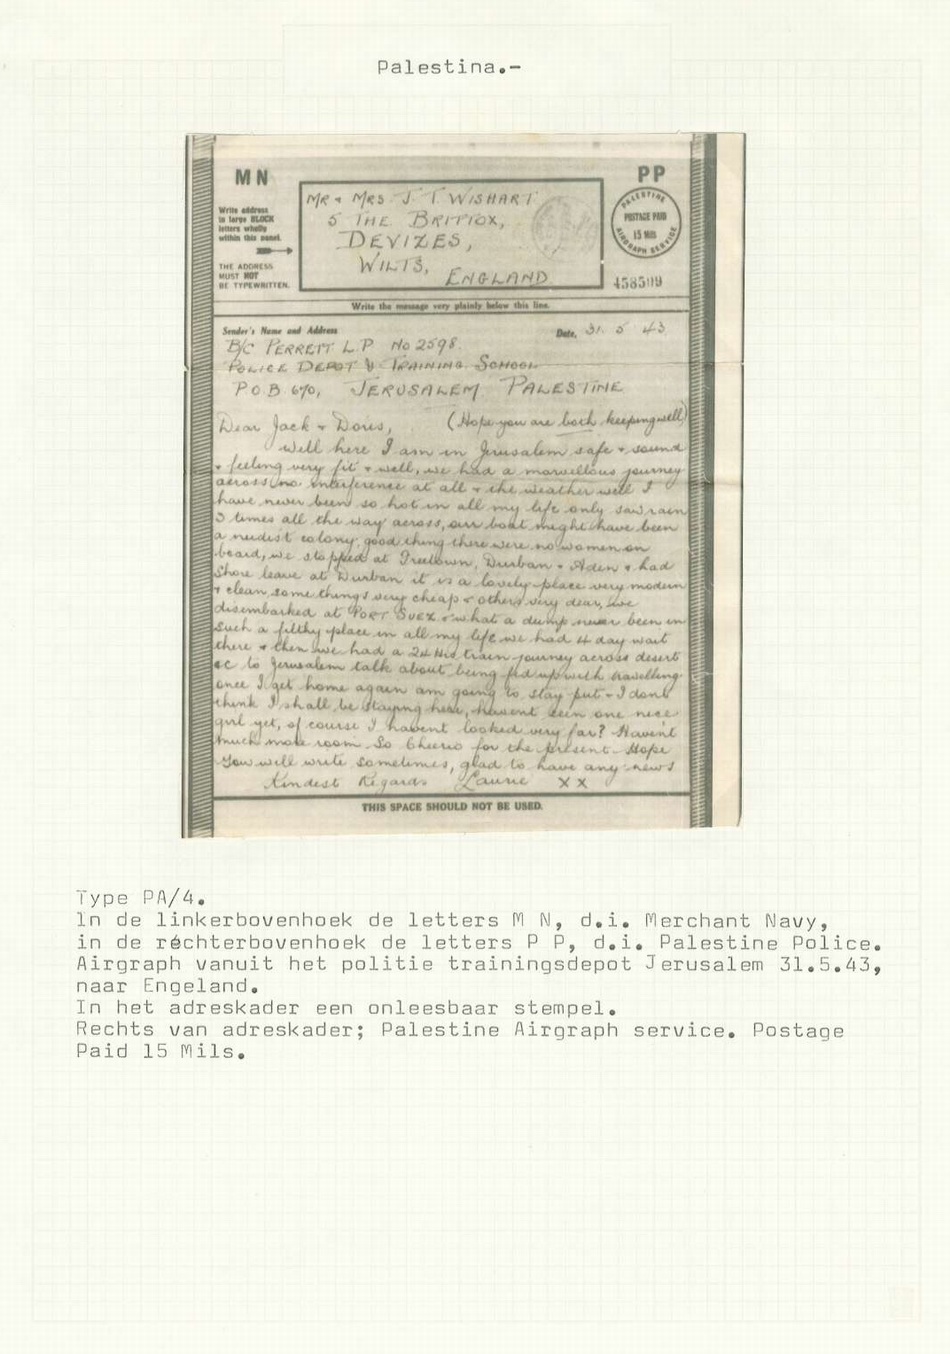 Palestina.-
MN
PP
Write address
in large BLOCK
letters wholly
within this panel.
THE ADDRESS
MUST NOT
BE TYPEWRITTEN.
MR + MRS J T WISHART
5 THE BRITTOX,
DEVIZES,
WILTS,
ENGLAND
PALESTINE
POSTAGE PAID
15 Mils
AIRGRAPH SERVICE
Write the message very plainly below this line.
Sender's Name and Address
Date, 31. 5 43
B/C PERRETT L.P No 2598.
POLICE DEPOT & TRAINING SCHOOL
P.O.B 670, JERUSALEM PALESTINE
Dear Jack + Doris, (Hope you are both keeping well)
Well here I am in Jerusalem safe + sound
+ feeling very fit + well, we had a marvellous journey
across, no interference at all + the weather well I
have never been so hot in all my life only saw rain
3 times all the way across, our boat might have been
a nudist colony, good thing there were no women on
board, we stopped at Freetown, Durban + Aden + had
Shore leave at Durban it is a lovely place very modern
+ clean, some things very cheap + others very dear, we
disembarked at PORT SUEZ + what a dump never been in
such a filthy place in all my life we had 4 day wait
there + then we had a 24 Hrs train journey across desert
ec to Jerusalem talk about being fed up with travelling.
once I get home again am going to stay put + I dont
think I shall be staying here, havent seen one nice
girl yet, of course I havent looked very far? Havent
much more room So Cheerio for the present. Hope
You will write sometimes, glad to have any news
Kindest Regards Laurie X X
THIS SPACE SHOULD NOT BE USED.
Type PA/4.
In de linkerbovenhoek de letters M N, d.i. Merchant Navy,
in de réchterbovenhoek de letters P P, d.i. Palestine Police.
Airgraph vanuit het politie trainingsdepot Jerusalem 31.5.43,
naar Engeland.
In het adreskader een onleesbaar stempel.
Rechts van adreskader; Palestine Airgraph service. Postage
Paid 15 Mils.